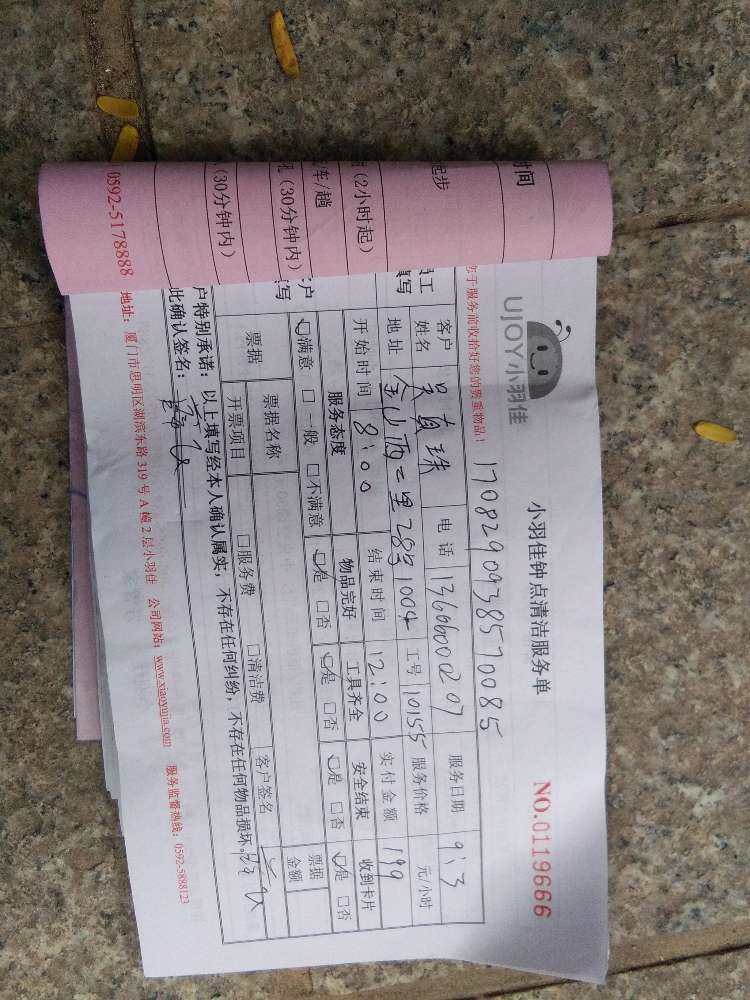 时间
起步
时(2小时起)
车/趟
孔(30分钟内)
(30分钟内)
UJOY小羽佳
小羽佳钟点清洁服务单
NO.0119666
1708290938570085
您于服务前收拾好您的贵重物品!
员工
填写
客户姓名 吴真珠 电话 13606000207 服务日期 9:3
地址 金山西二里28号1004 工号 10155 服务价格 元/小时
开始时间 8:00 结束时间 12:00 实付金额 199
客户
填写
服务态度 物品完好 工具齐全 安全结束 收到卡片
☑满意 □一般 □不满意 ☑是 □否 ☑是 □否 ☑是 □否 ☑是 □否
票据 票据名称 客户签名 票据金额
开票项目 □服务费 □清洁费
户特别承诺:以上填写经本人确认属实,不存在任何纠纷,不存在任何物品损坏。
此确认签名:
0592-5178888 地址:厦门市思明区湖滨东路319号A幢2层小羽佳 公司网站:www.xiaoyujia.com 服务监督热线:0592-5888123